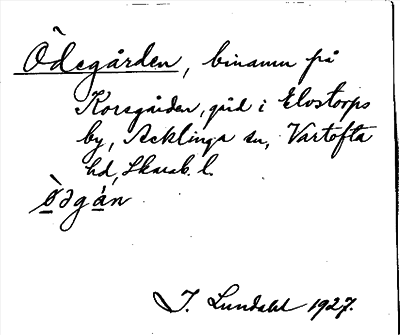 Ödegården, binamn på
Korsgården, gård i Elvstorps
by, Acklinga sn, Vartofta
hd, Skarab. l.
ö̀dgá̀n
I. Lundahl 1927.